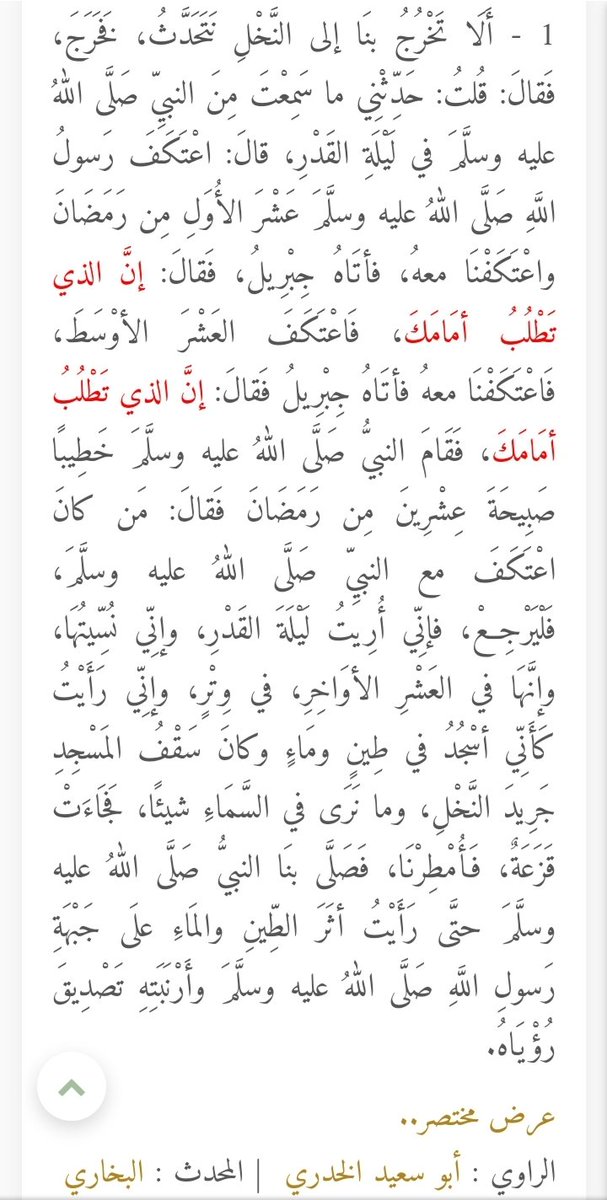 1 - أَلَا تَخْرُجُ بنَا إلى النَّخْلِ نَتَحَدَّثُ، فَخَرَجَ،
فَقالَ: قُلتُ: حَدِّثْنِي ما سَمِعْتَ مِنَ النبيِّ صَلَّى اللهُ
عليه وسلَّمَ في لَيْلَةِ القَدْرِ، قالَ: اعْتَكَفَ رَسولُ
اللَّهِ صَلَّى اللهُ عليه وسلَّمَ عَشْرَ الأُوَلِ مِن رَمَضَانَ
واعْتَكَفْنَا معهُ، فأتَاهُ جِبْرِيلُ، فَقالَ: إنَّ الذي
تَطْلُبُ أمَامَكَ، فَاعْتَكَفَ العَشْرَ الأوْسَطَ،
فَاعْتَكَفْنَا معهُ فأتَاهُ جِبْرِيلُ فَقالَ: إنَّ الذي تَطْلُبُ
أمَامَكَ، فَقَامَ النبيُّ صَلَّى اللهُ عليه وسلَّمَ خَطِيبًا
صَبِيحَةَ عِشْرِينَ مِن رَمَضَانَ فَقالَ: مَن كانَ
اعْتَكَفَ مع النبيِّ صَلَّى اللهُ عليه وسلَّمَ،
فَلْيَرْجِعْ، فإنِّي أُرِيتُ لَيْلَةَ القَدْرِ، وإنِّي نُسِّيتُهَا،
وإنَّهَا في العَشْرِ الأوَاخِرِ، في وِتْرٍ، وإنِّي رَأَيْتُ
كَأَنِّي أسْجُدُ في طِينٍ ومَاءٍ وكانَ سَقْفُ المَسْجِدِ
جَرِيدَ النَّخْلِ، وما نَرَى في السَّمَاءِ شيئًا، فَجَاءَتْ
قَزَعَةٌ، فَأُمْطِرْنَا، فَصَلَّى بنَا النبيُّ صَلَّى اللهُ عليه
وسلَّمَ حتَّى رَأَيْتُ أثَرَ الطِّينِ والمَاءِ علَى جَبْهَةِ
رَسولِ اللَّهِ صَلَّى اللهُ عليه وسلَّمَ وأَرْنَبَتِهِ تَصْدِيقَ
رُؤْيَاهُ.
عرض مختصر..
الراوي : أبو سعيد الخدري | المحدث : البخاري